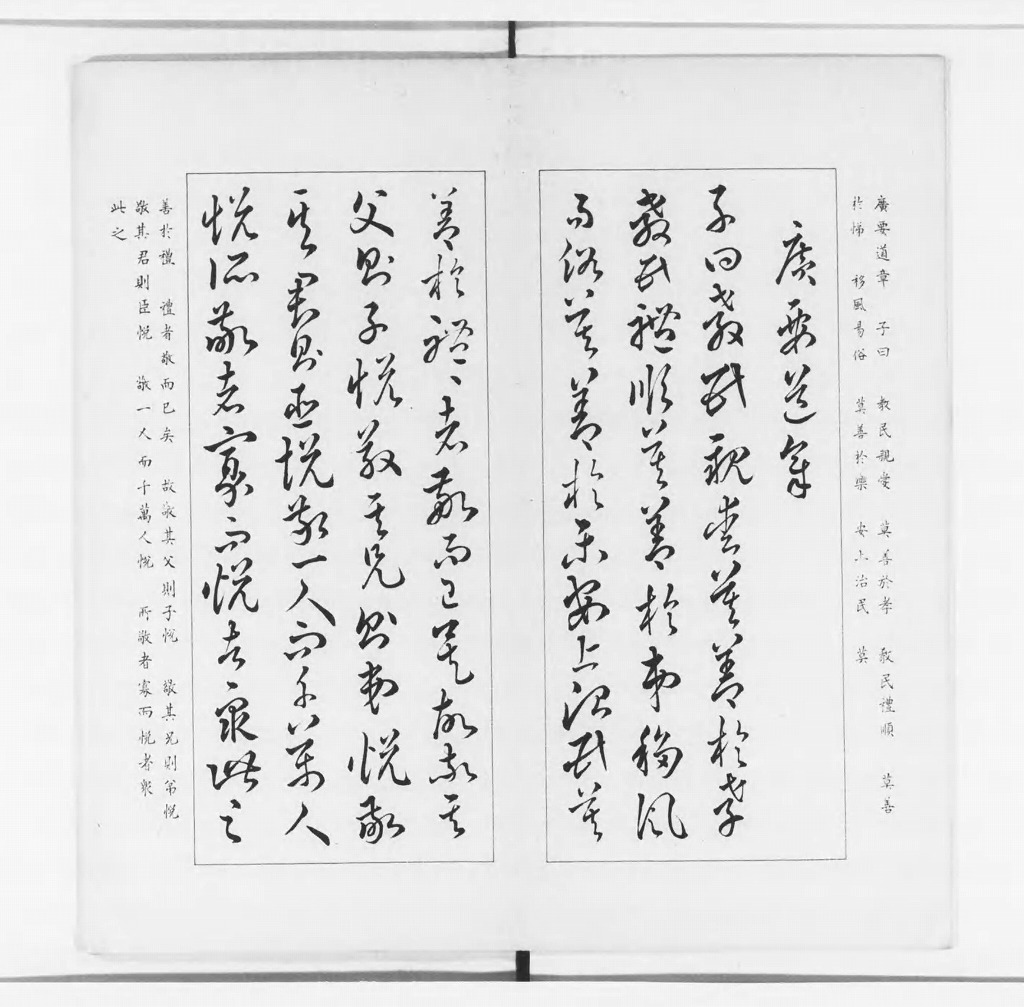 廣要道章 子曰 教民親愛 莫善於孝 教民禮順 莫善
於悌 移風易俗 莫善於樂 安上治民 莫
廣要道章
子曰教民親愛莫善於孝
教民禮順莫善於弟移風
易俗莫善於樂安上治民莫
善於禮〻者敬而已矣故敬其
父則子悅敬其兄則弟悅敬
其君則臣悅敬一人而千萬人
悅所敬者寡而悅者衆此之
善於禮 禮者敬而已矣 故敬其父則子悅 敬其兄則弟悅
敬其君則臣悅 敬一人而千萬人悅 所敬者寡而悅者衆
此之